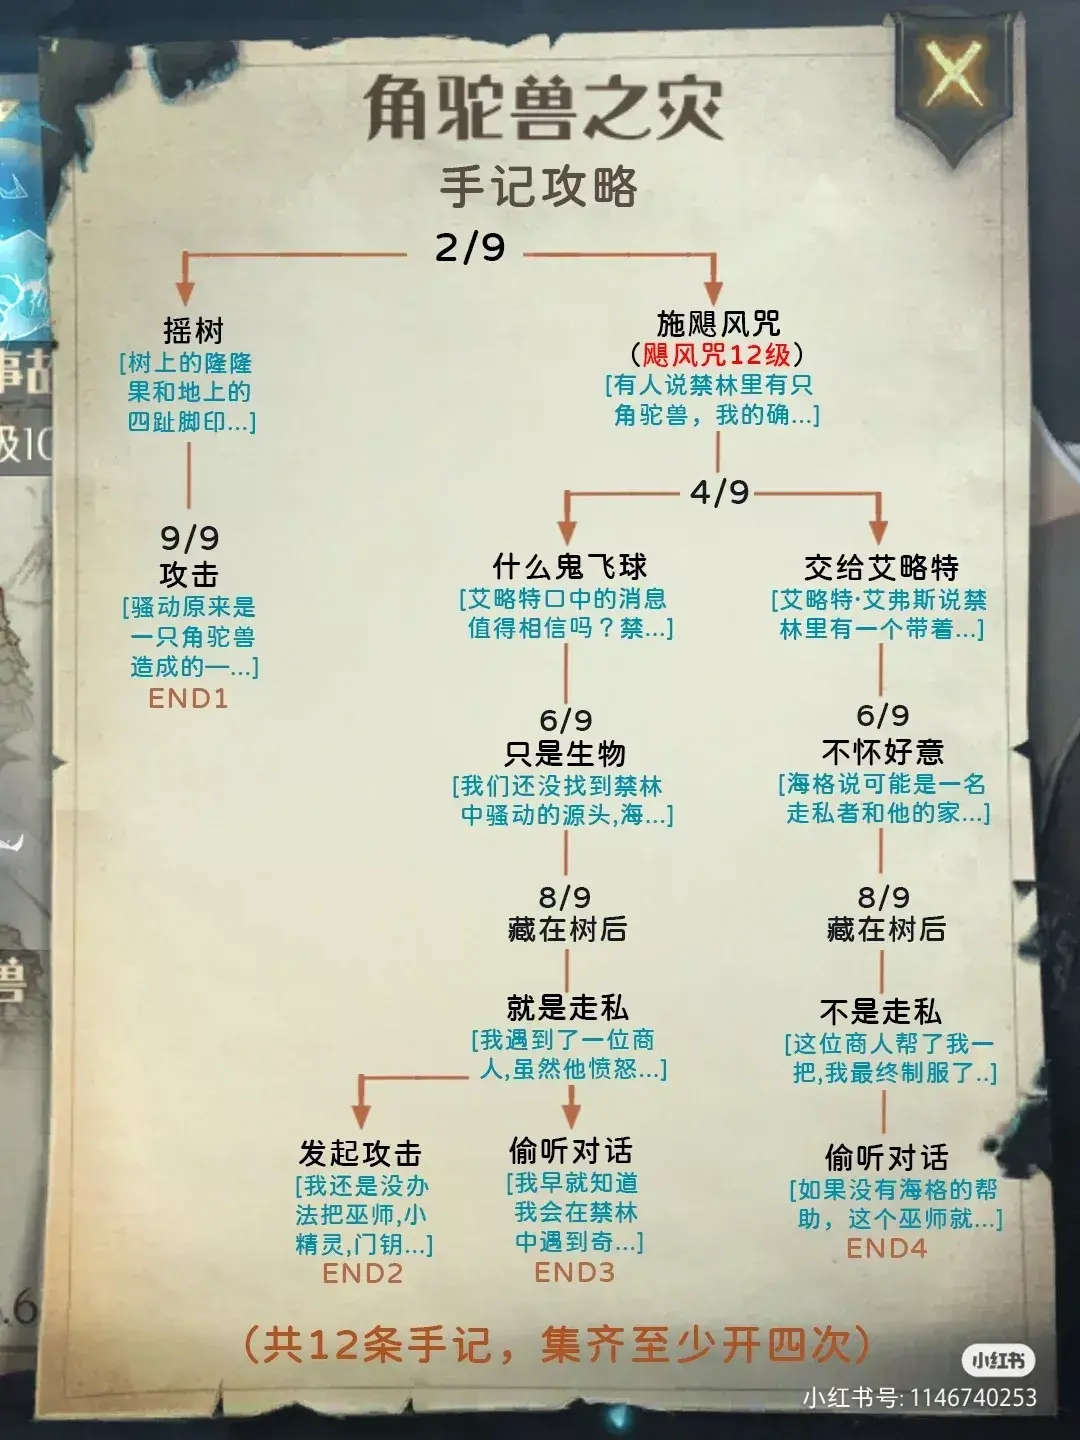 角驼兽之灾
手记攻略
2/9
摇树
[树上的隆隆
果和地上的
四趾脚印...]
9/9
攻击
[骚动原来是
一只角驼兽
造成的一...]
END1
施飓风咒
（飓风咒12级）
[有人说禁林里有只
角驼兽，我的确...]
4/9
什么鬼飞球
[艾略特口中的消息
值得相信吗？禁...]
6/9
只是生物
[我们还没找到禁林
中骚动的源头,海...]
8/9
藏在树后
就是走私
[我遇到了一位商
人,虽然他愤怒...]
发起攻击
[我还是没办
法把巫师,小
精灵,门钥...]
END2
偷听对话
[我早就知道
我会在禁林
中遇到奇...]
END3
交给艾略特
[艾略特·艾弗斯说禁
林里有一个带着...]
6/9
不怀好意
[海格说可能是一名
走私者和他的家...]
8/9
藏在树后
不是走私
[这位商人帮了我一
把,我最终制服了..]
偷听对话
[如果没有海格的帮
助，这个巫师就...]
END4
（共12条手记，集齐至少开四次）
事故
级10
兽
.6
小红书
小红书号: 1146740253